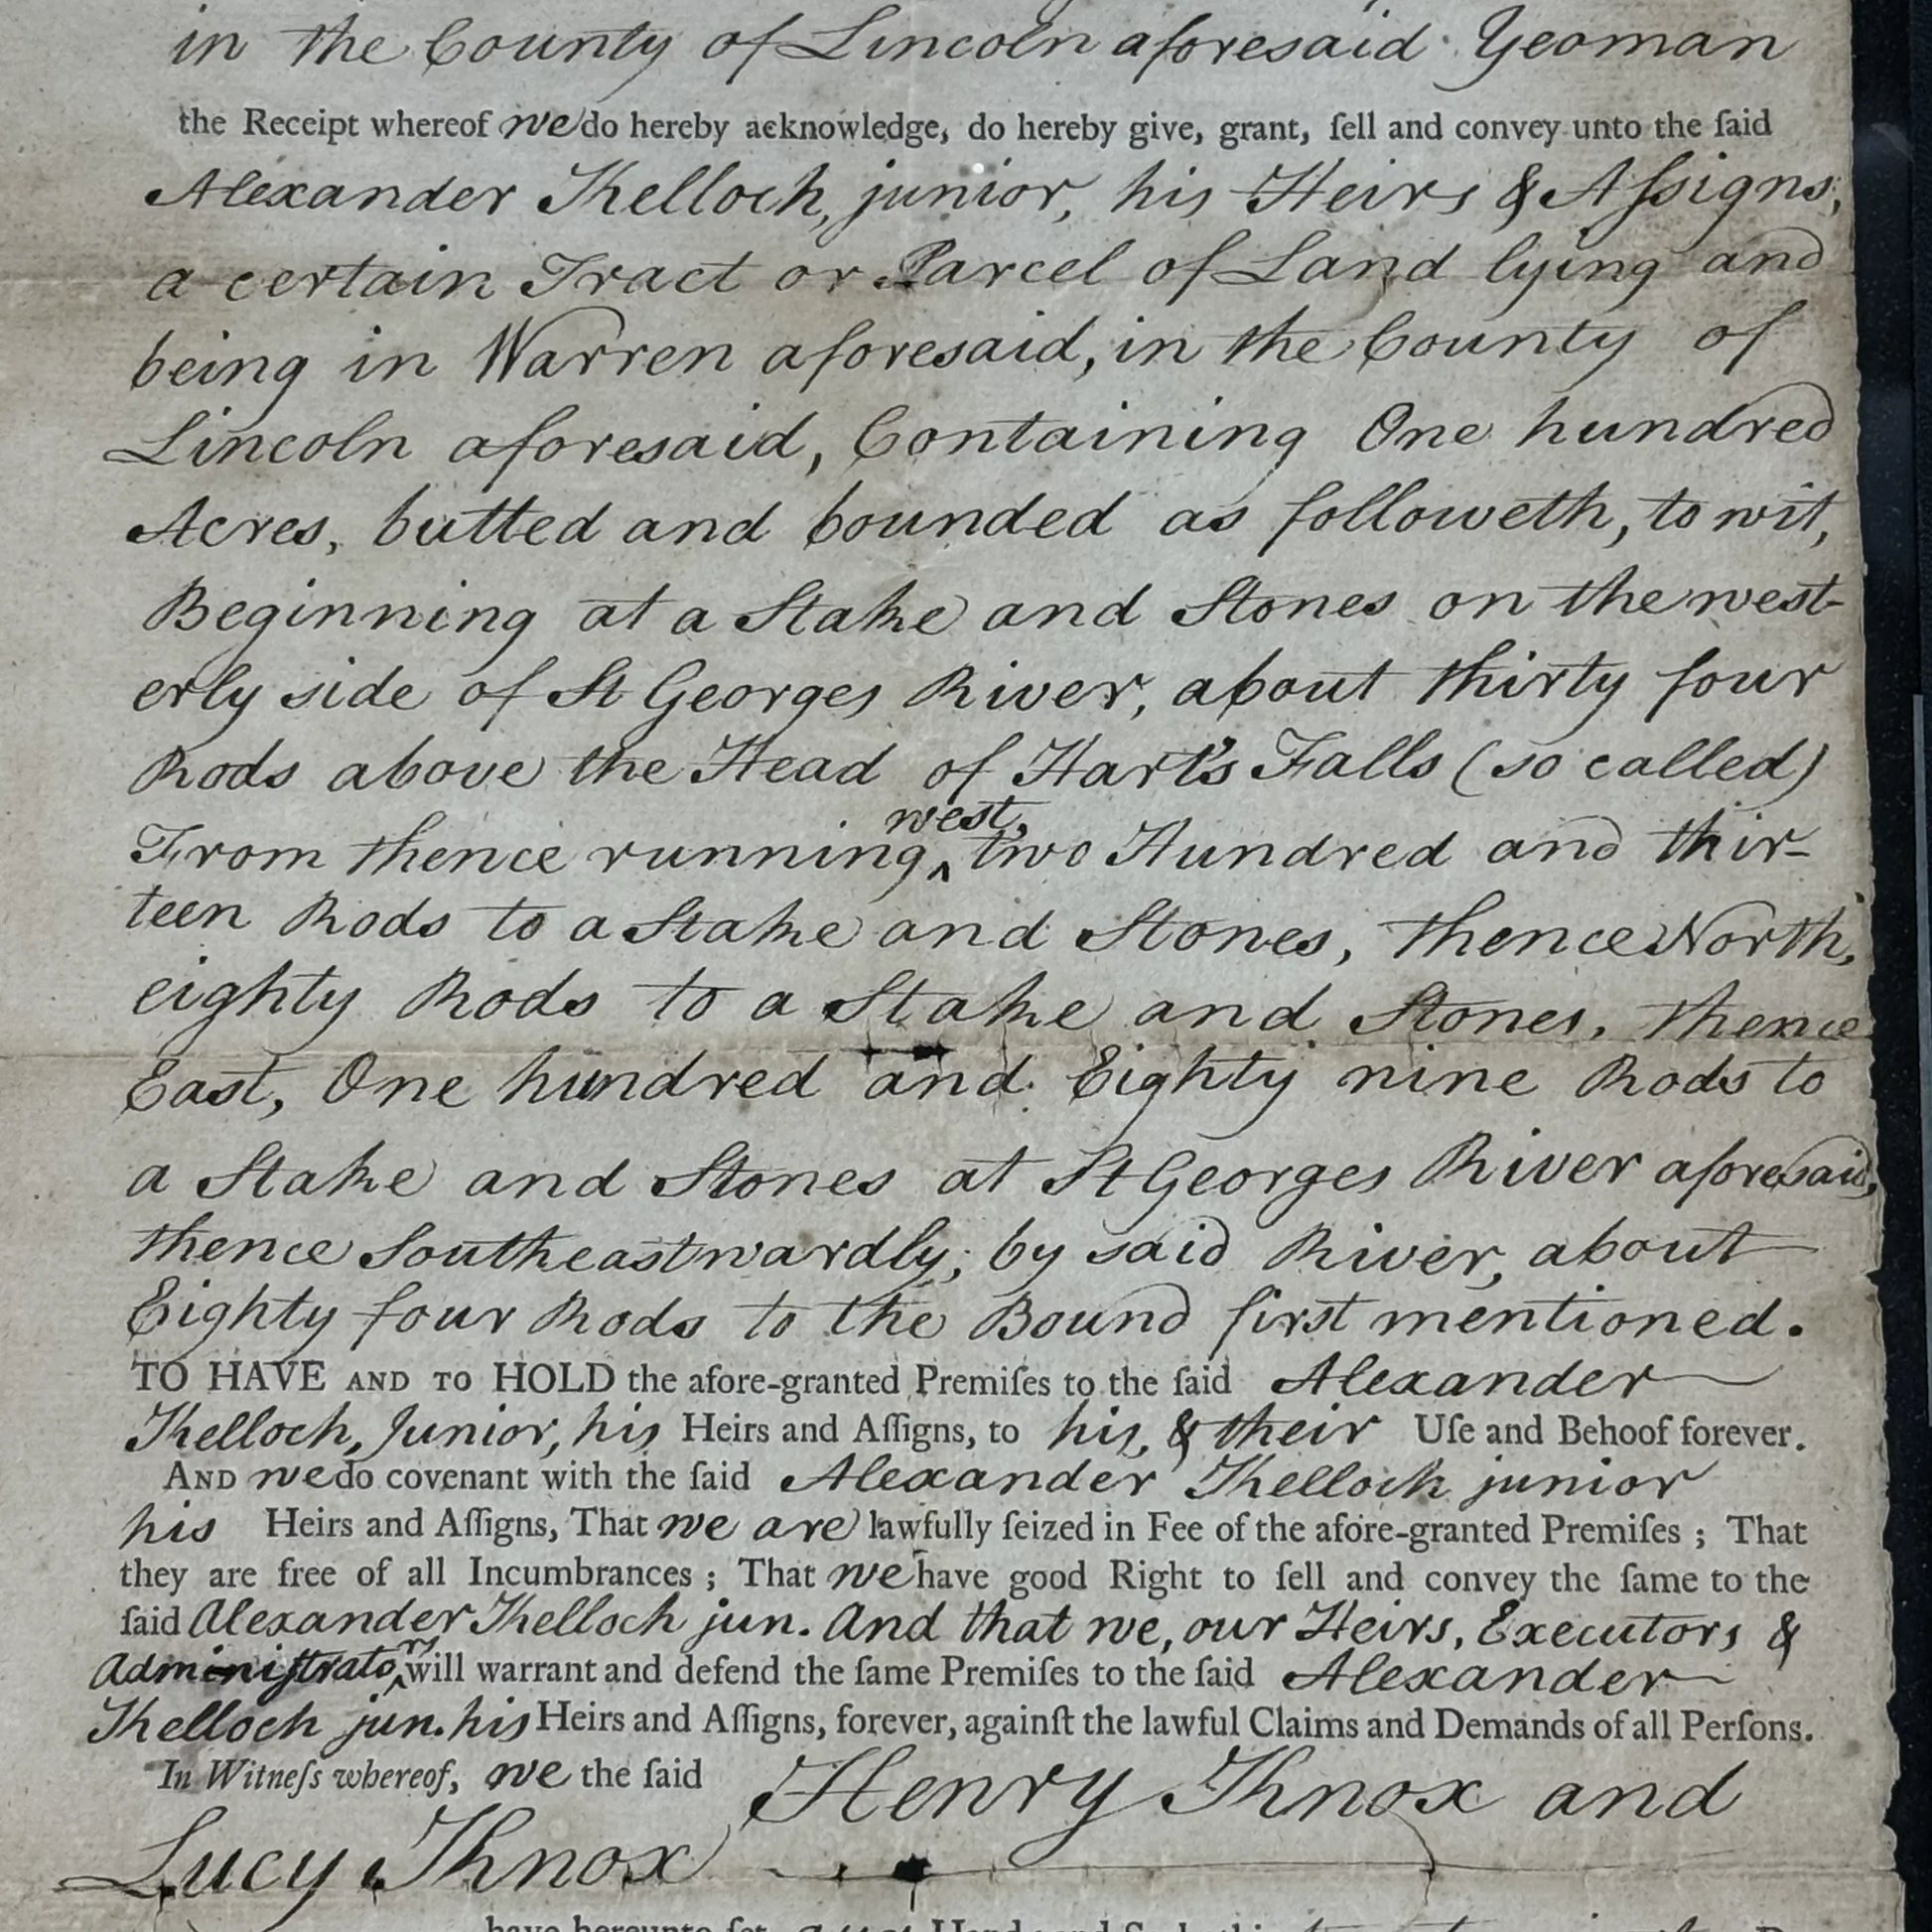 in the County of Lincoln aforesaid Yeoman
the Receipt whereof we do hereby acknowledge, do hereby give, grant, ſell and convey unto the ſaid
Alexander Kelloch, junior, his Heirs & Aſsigns,
a certain Tract or Parcel of Land lying and
being in Warren aforesaid, in the County of
Lincoln aforesaid, Containing One hundred
Acres, butted and bounded as followeth, to wit,
Beginning at a Stake and Stones on the west-
erly side of St Georges River, about thirty four
Rods above the Head of Hart's Falls (so called)
west,
From thence running ‸ two Hundred and thir-
teen Rods to a Stake and Stones, thence North,
eighty Rods to a Stake and Stones, thence
East, One hundred and Eighty nine Rods to
a Stake and Stones at St Georges River aforesaid,
thence Southeastwardly, by said River, about
Eighty four Rods to the Bound first mentioned.
TO HAVE AND TO HOLD the afore-granted Premiſes to the ſaid Alexander
Kelloch, Junior, his Heirs and Aſſigns, to his, & their Uſe and Behoof forever.
AND we do covenant with the ſaid Alexander Kelloch junior
his Heirs and Aſſigns, That we are lawfully ſeized in Fee of the afore-granted Premiſes ; That
they are free of all Incumbrances ; That we have good Right to ſell and convey the ſame to the
ſaid Alexander Kelloch jun. And that we, our Heirs, Executors &
Adminiſtrato‸rs will warrant and defend the ſame Premiſes to the ſaid Alexander
Kelloch jun. his Heirs and Aſſigns, forever, againſt the lawful Claims and Demands of all Perſons.
In Witneſs whereof, we the ſaid Henry Knox and
Lucy Knox
have hereunto ſet